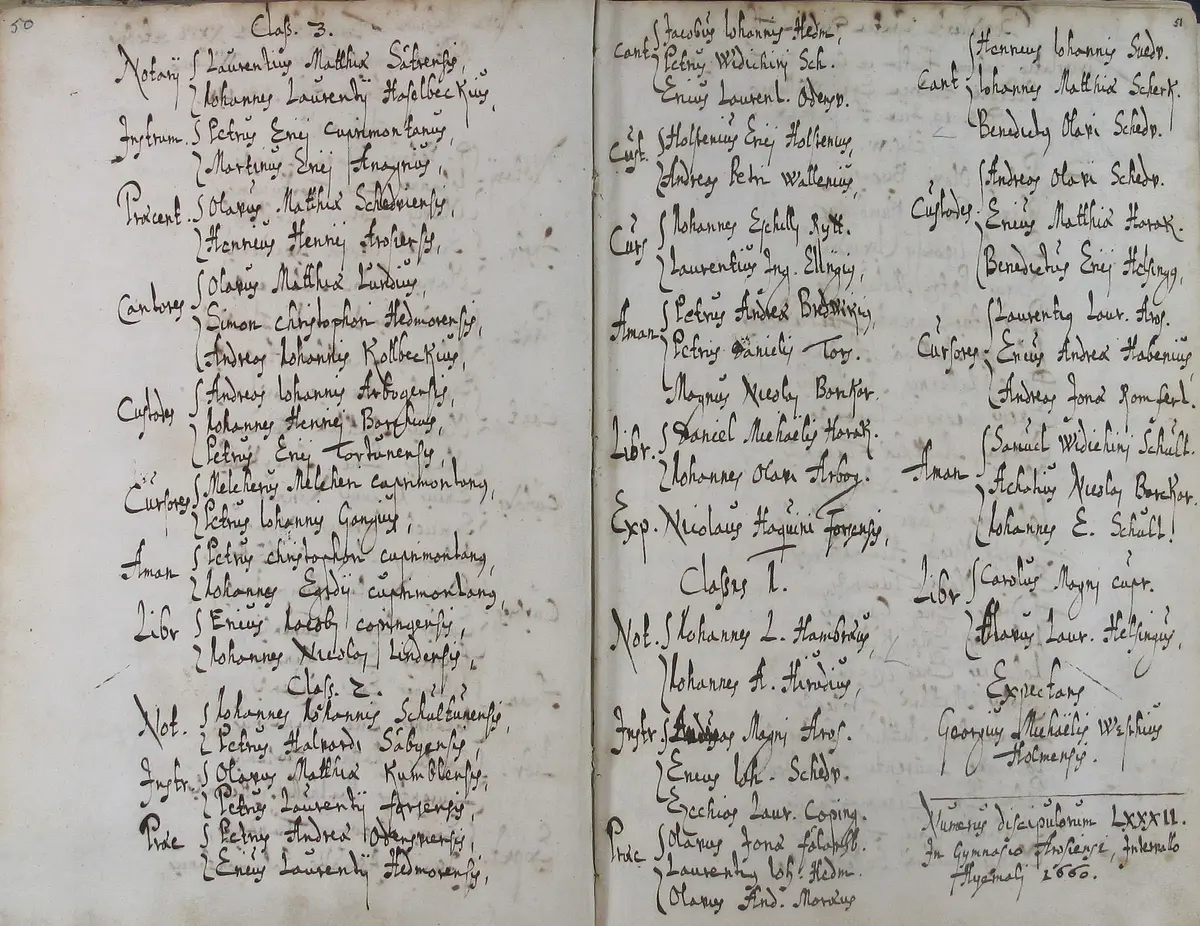 50
Class. 3.
Notarij Laurentius Matthiæ Satrensis,
Iohannes Laurentij Haselbeckius,
Instrum. Petrus Erici cuprimontanus,
Martinus Erici
Præcent. Olavus Matthiæ Schedviensis,
Henricus Henrici Arosiensis,
Cantores Olavus Matthiæ Lundius,
Simon christophori Hedmorensis,
Andreas Iohannis Kolbeckius,
Custodes Andreas Iohannis Arbogensis,
Iohannes Henrici Barchius,
Petrus Erici Tortunensis,
Cursores Melcherus Melcheri cuprimontang,
Petrus Iohannis Gangius,
Aman Petrus christophori cuprimontang,
Iohannes Egidij cuprimontang,
Libr Ericus Iacobi copingensis,
Iohannes Nicolai Lindensis,
Class. 2.
Not. Iohannes Iohannis Schultunensis,
Petrus Halvardi Säbyensis,
Instr. Olavus Matthiæ Kumblensis,
Petrus Laurentij forsensis,
Præc Petrus Andreæ Odensviensis,
Ericus Laurentij Hedmorensis,
51
Cant Iacobus Iohannis Hedm,
Petrus Widichini Sch.
Ericus Laurent. Odensv.
Cust. Holstenius Erici Holstenius,
Andreas Petri Wallenius,
Curs Iohannes Eschilli Rytt.
Laurentius Ing.
Aman Petrus Andreæ
Petrus Danielis Tors.
Magnus Nicolai Barkar.
Libr. Daniel Michaelis Harak.
Iohannes Olavi Arbog.
Exp. Nicolaus Haquini Forsensis,
Classis 1.
Not. Iohannes L. Hambræus,
Iohannes A. Hirudius,
Instr. Andreas Magni Aros.
Ericus Ioh. Schedv.
Laur. Coping.
Præc Olavus Jonæ
Laurentig Ioh. Hedm.
Olavus And. Moræus
Cant Henricus Iohannis Suedv.
Iohannes Matthiæ Scherk.
Benedictg Olavi Schedv.
Custodes Andreas Olavi Schedv.
Ericus Matthiæ Harak.
Benedictus Erici Helsingg,
Cursores Laurentig Laur. Aros.
Ericus Andreæ Habenius,
Andreas Jonæ Romferl.
Aman Samuel Widichini Schult.
Achatius Nicolai Barckar.
Iohannes E. Schult.
Libr Carolus Magni cupr.
Olavus Laur. Helsingus,
Expectans
Georgius Michaelis
Holmensis.
Numerus discipulorum LXXXII.
In Gymnasio Arosiense, Intervallo
Hyemali 1660.